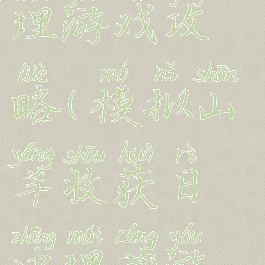 理游戏攻
lüè mó nǐ shān
略(模拟山
yáng shōu huò rì
羊收获日
zhǎng mái cáng yóu